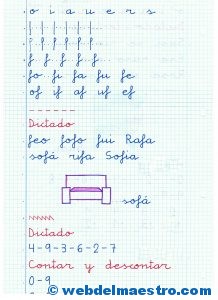 o i a u e r s
f f f f f f
f f f f f
fo fi fa fu fe
of if af uf ef
Dictado
feo fofo fui Rafa
sofá rifa Sofía
sofá
Dictado
4-9-3-6-2-7
Contar y descontar
0-9
© webdelmaestro.com